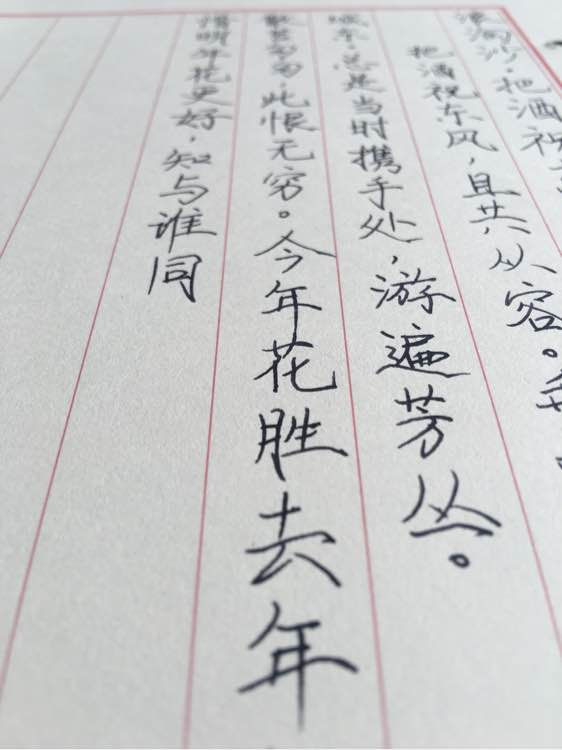 浪淘沙·把酒祝
把酒祝东风,且共从容。垂
城东,总是当时携手处,游遍芳丛。
散苦匆匆,此恨无穷。今年花胜去年
惜明年花更好,知与谁同